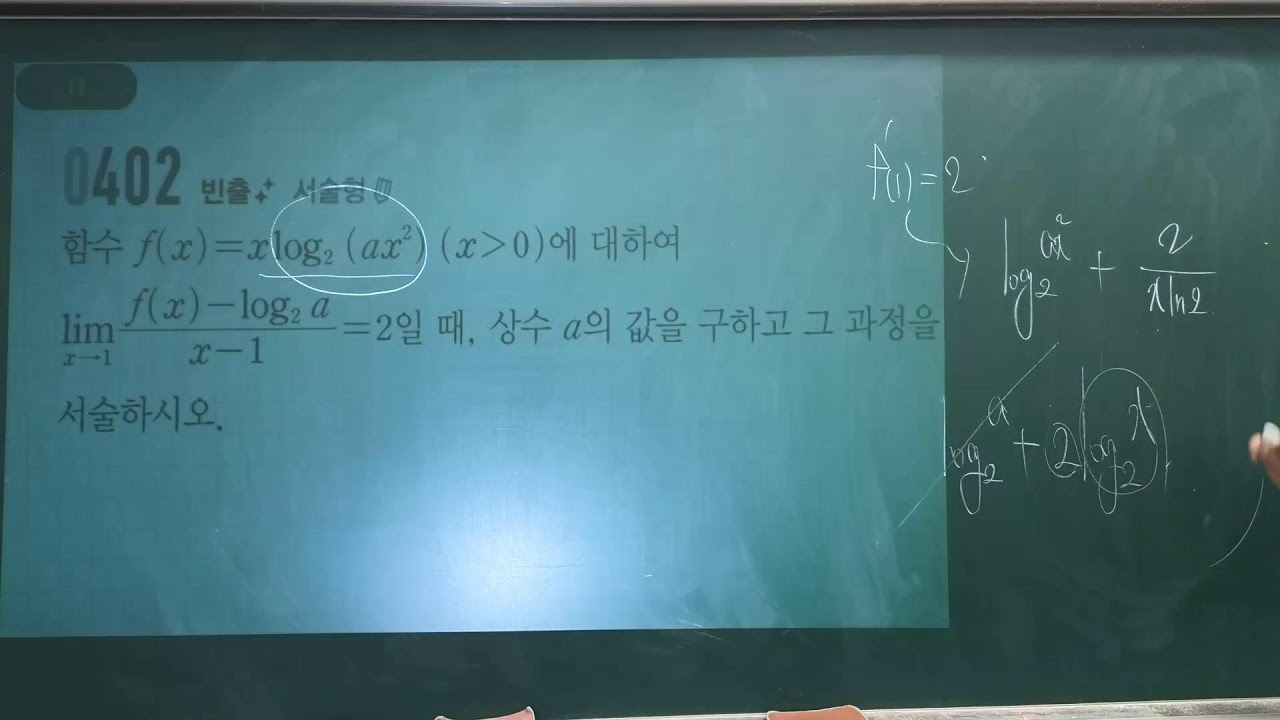 0402 빈출 서술형
함수 f(x)=xlog₂(ax²) (x>0)에 대하여
lim x→1 (f(x)−log₂a)/(x−1) =2일 때, 상수 a의 값을 구하고 그 과정을
서술하시오.
f'(1)=2
log₂ax² + 2/(xln2)
log₂a + 2log₂x